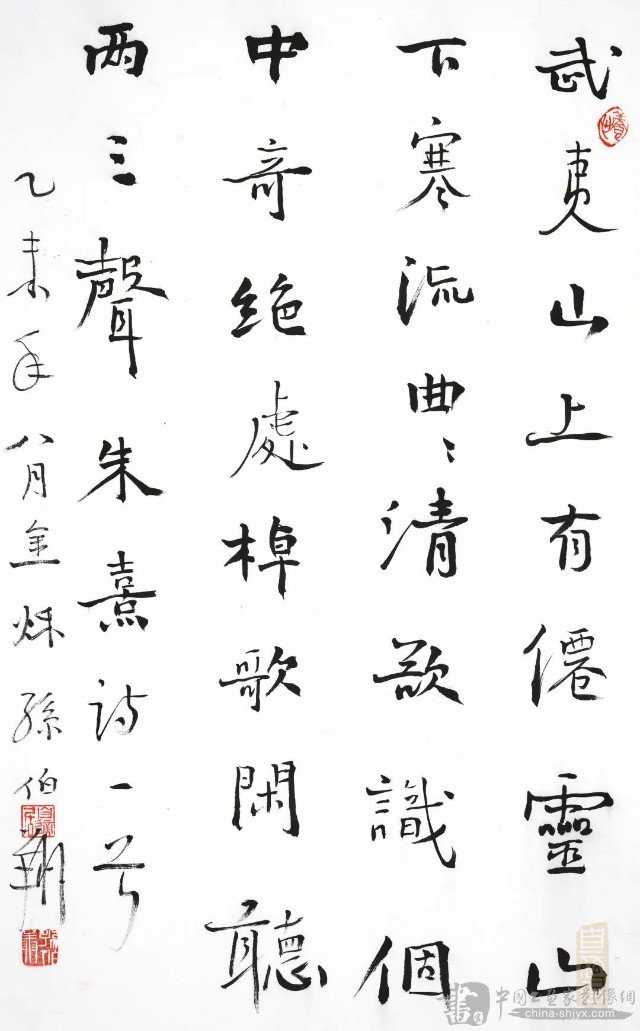 武夷山上有僊靈山
下寒流曲〻清欲識個
中奇絕處棹歌閑聽
两三聲朱熹詩一首
乙未年八月金秌孫伯翔
中国书画家影像網
china-shjyx.com